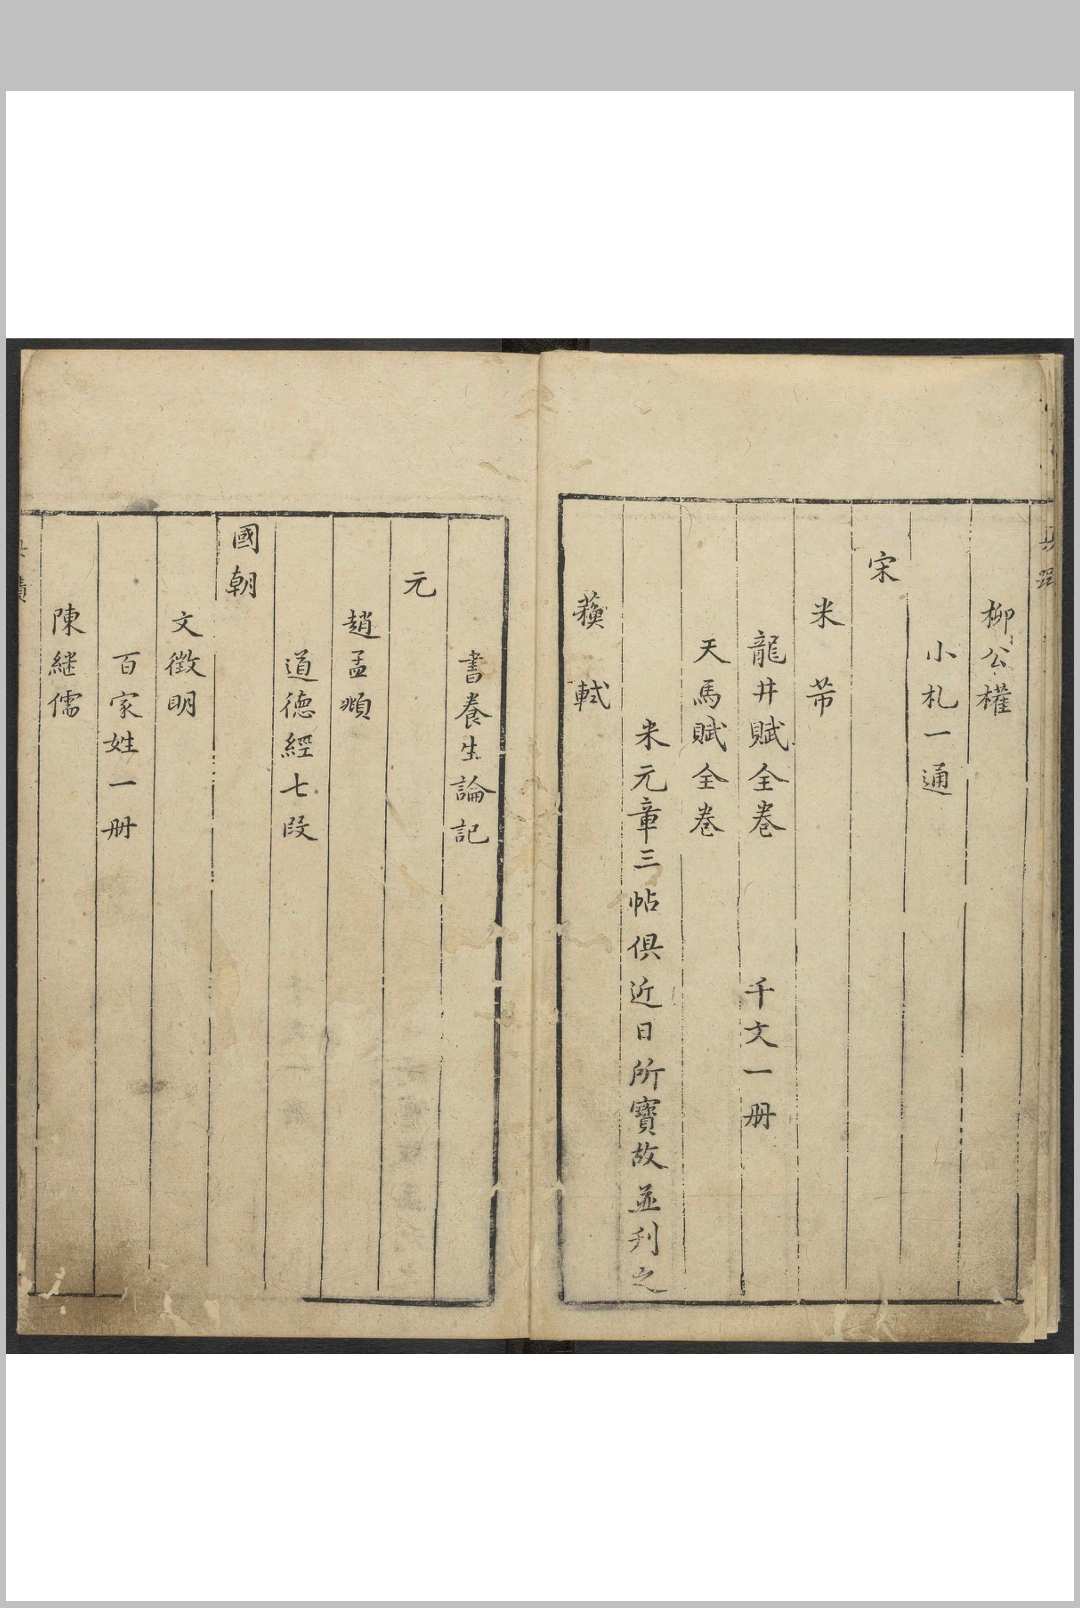 柳公權
小札一通
宋
米芾
龍井賦全卷 千文一册
天馬賦全卷
米元章三帖俱近日所寶故並刋之
蘓軾
書養生論記
元
趙孟頫
道德經七段
國朝
文徵明
百家姓一册
陳継儒